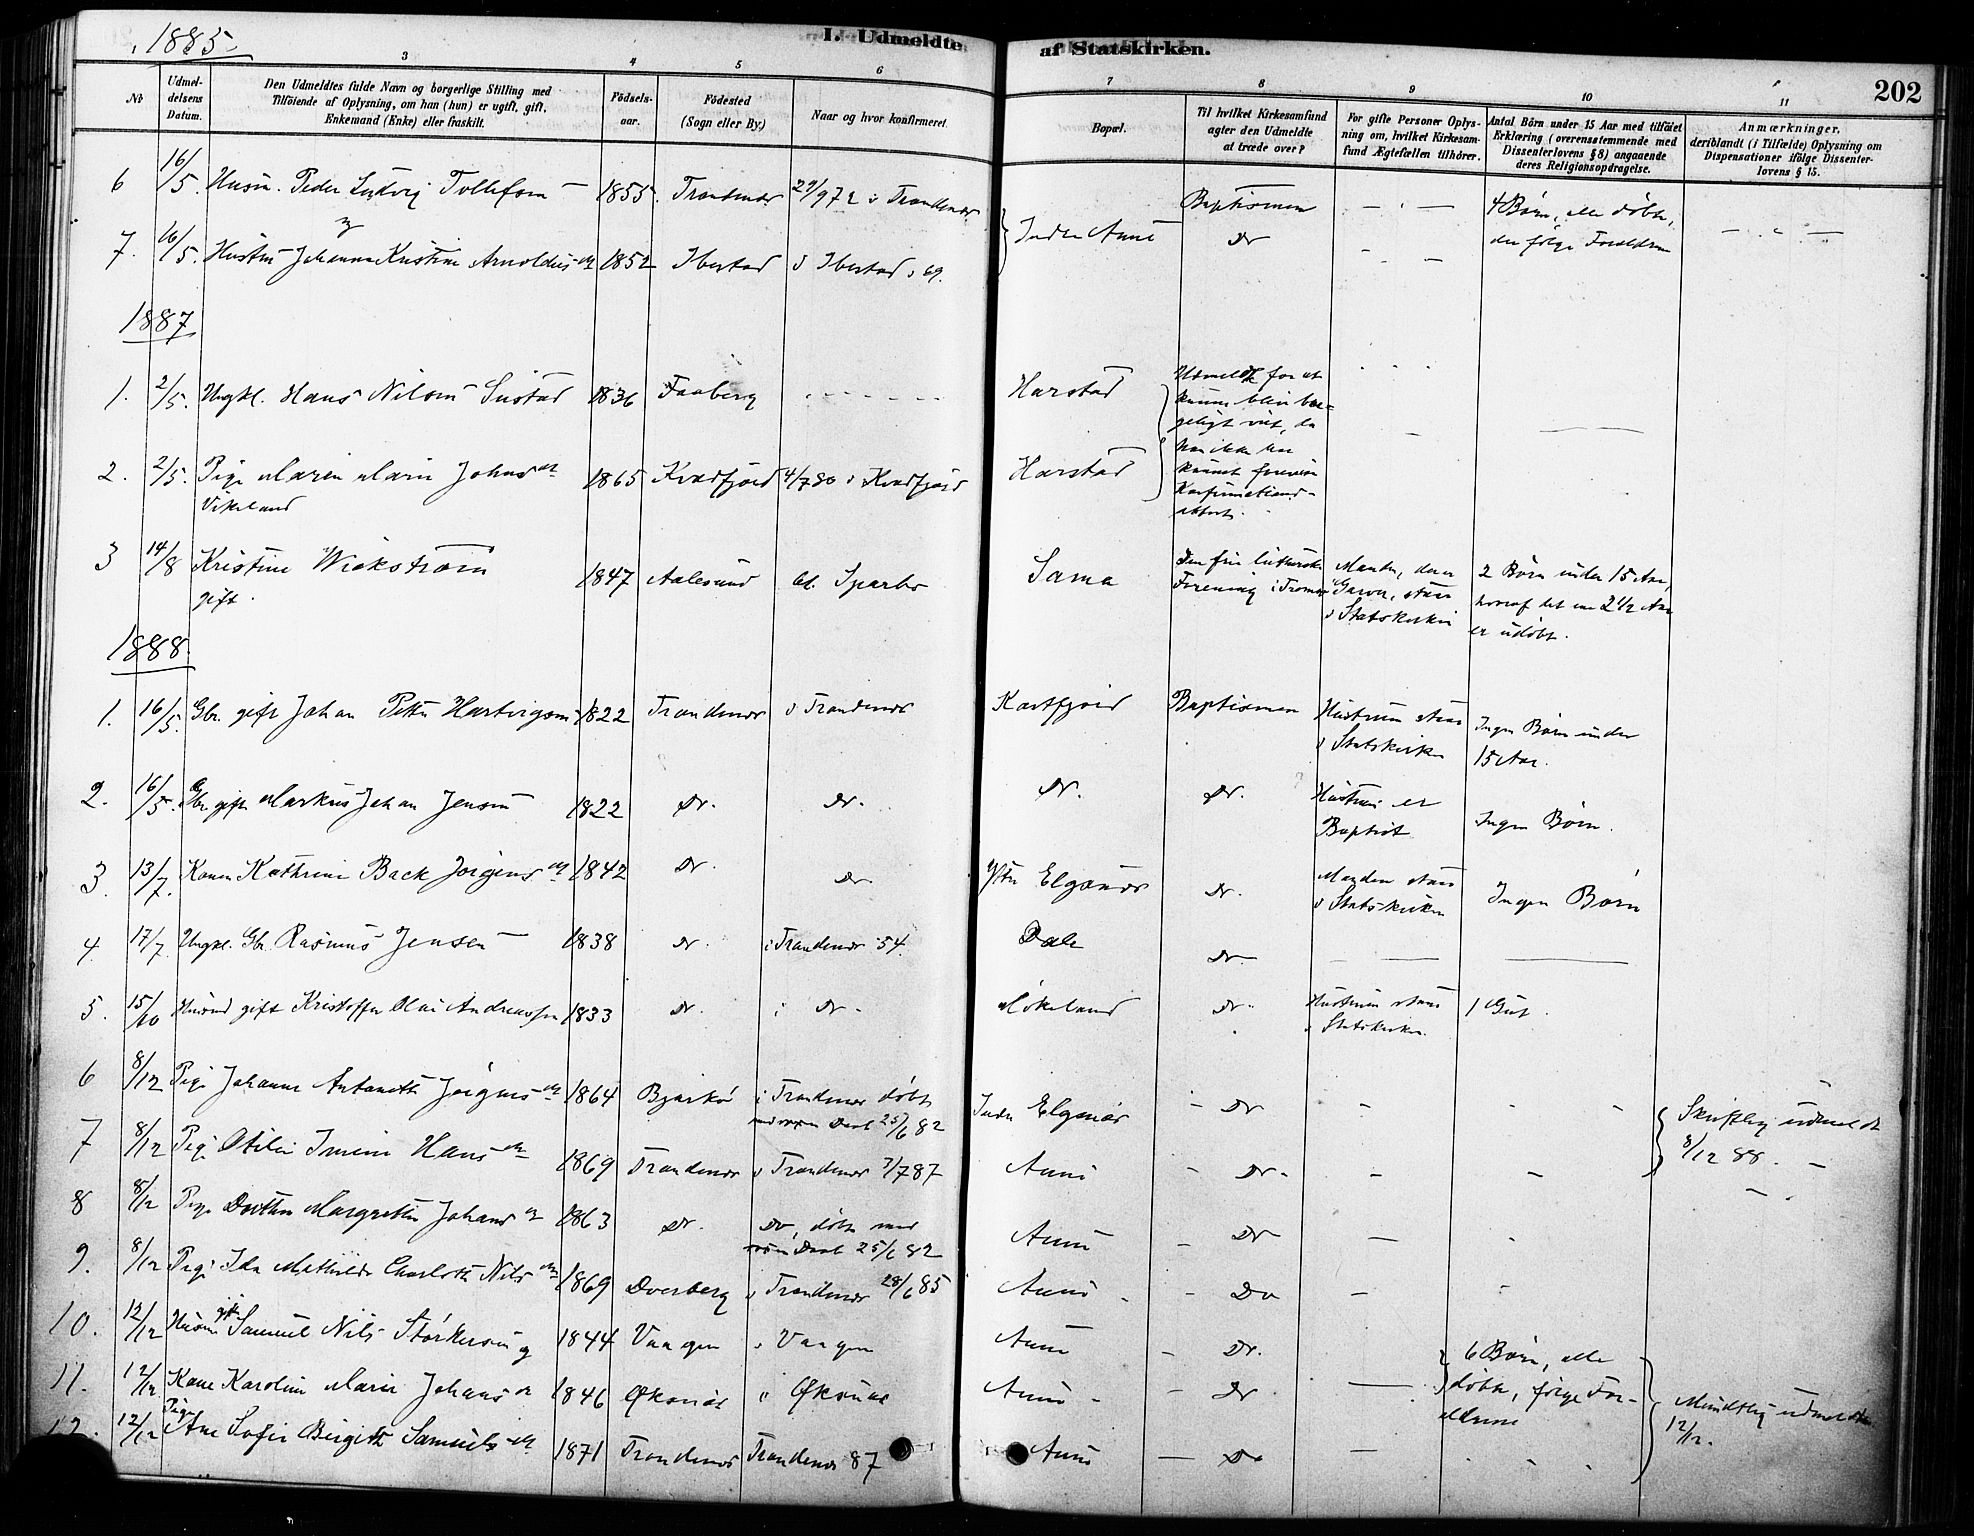 1885.
I. Udmeldte af Statskirken.
202
3 4 5 6 7 8 9 10 11
No
Udmeldelsens Datum.
Den Udmeldtes fulde Navn og borgerlige Stilling med Tilföiende af Oplysning, om han (hun) er ugift, gift, Enkemand (Enke) eller fraskilt.
Födselsaar.
Födested (Sogn eller By.)
Naar og hvor konfirmeret.
Bopæl.
Til hvilket Kirkesamfund agter den Udmeldte at træde over?
For gifte Personer Oplysning om, hvilket Kirkesamfund Ægtefællen tilhörer.
Antal Börn under 15 Aar med tilföiet Erklæring (overensstemmende med Dissenterlovens § 8) angaaende deres Religionsopdragelse.
Anmærkninger, deriblandt (i Tilfælde) Oplysning om Dispensationer ifölge Dissenterlovens § 15.
6 16/5. Husm. Peder Ludvig Tollefsen 1855. Trondenæs 29/9 72 i Trondenæs Indre Aune Baptismen 4 Børn, alle døbte, der følge Forældrene
7. 16/5. Hustru Johanna Kristine Arnoldus dt 1852 Ibestad i Ibestad, 69. Dr
1887
1. 2/5. Ungkl. Hans Nilsen Sustad 1836 Faaberg Harstad Udmeldt for at kunne blive borgerligt viet, da
2. 2/5. Pige Maren Marie Johns dt Vikeland 1865 Kvæfjord 4/7 80 i Kvæfjord Harstad han ikke har kunnet forevise Konfirmationsattest.
3 14/8 Kristine Wickstrøm gift. 1847 Aalesund Sparbo Sama Den frie lutherske Forening i Tromsø Manden, staar i Statskirken 2 Børn under 15 Aar, hvoraf det ene 2 1/2 Aar er udøbt.
1888.
1. 16/5. Gbr. gift Johan Petter Hartvigsen 1822 Trondenæs i Trondenæs Kasfjord Baptismen Hustruen staar i Statskirken Ingen Børn under 15 Aar.
2. 16/5. Gbr. gift Markus Johan Jensen 1822 Dr. Dr. Dr. Dr. Hustruen er Baptist Ingen Børn.
3. 13/7. Konen Kathrine Back Jørgens dt 1842 Dr. Dr. Ytre Elgenæs Dr. Manden staar i Statskirken Ingen Børn
4. 17/7. Ungkl. Gbr. Rasmus Jensen 1838 Dr. i Trondenæs 54. Dale Dr.
5. 15/10 Husmd gift Kristoffer Olai Andreassen 1833 Dr. i Dr. Møkeland Dr. Hustruen staar i Statskirken. 1 Gut.
6 8/12 Pige Johanne Antonette Jørgens dt 1864 Bjarkø i Trondenæs døbt 25/6 82 Indre Elgenæs Dr Skriftlig udmeldt 8/12 88.
7 8/12 Pige Otilie Irmine Hans dt 1869 Trondenæs i Trondenæs 3/7 87 Aune Dr.
8 8/12 Pige Dorthea Margrethe Johans dt 1863 Dr. Dr, døbt med 25/6 82 Aune Dr
9. 8/12 Pige Ida Mathilde Charlotte Nils dt 1869 Dverberg i Trondenæs 28/6 85 Aune Do
10. 12/12 Husm gift Samuel Nils Størkersen og 1844 Vaagen i Vaagen Aune Dr. 6 Børn, alle
11. 12/12 Kone Karoline Marie Johans dt 1846 Øksnæs i Øksnæs Aune Dr døbte, følge Forældrene Mundtlig udmeldte 12/12.
12. 12/12 Pige Ane Sofie Birgitte Samuels dt 1871 Trondenæs Trondenæs 87 Aune Do